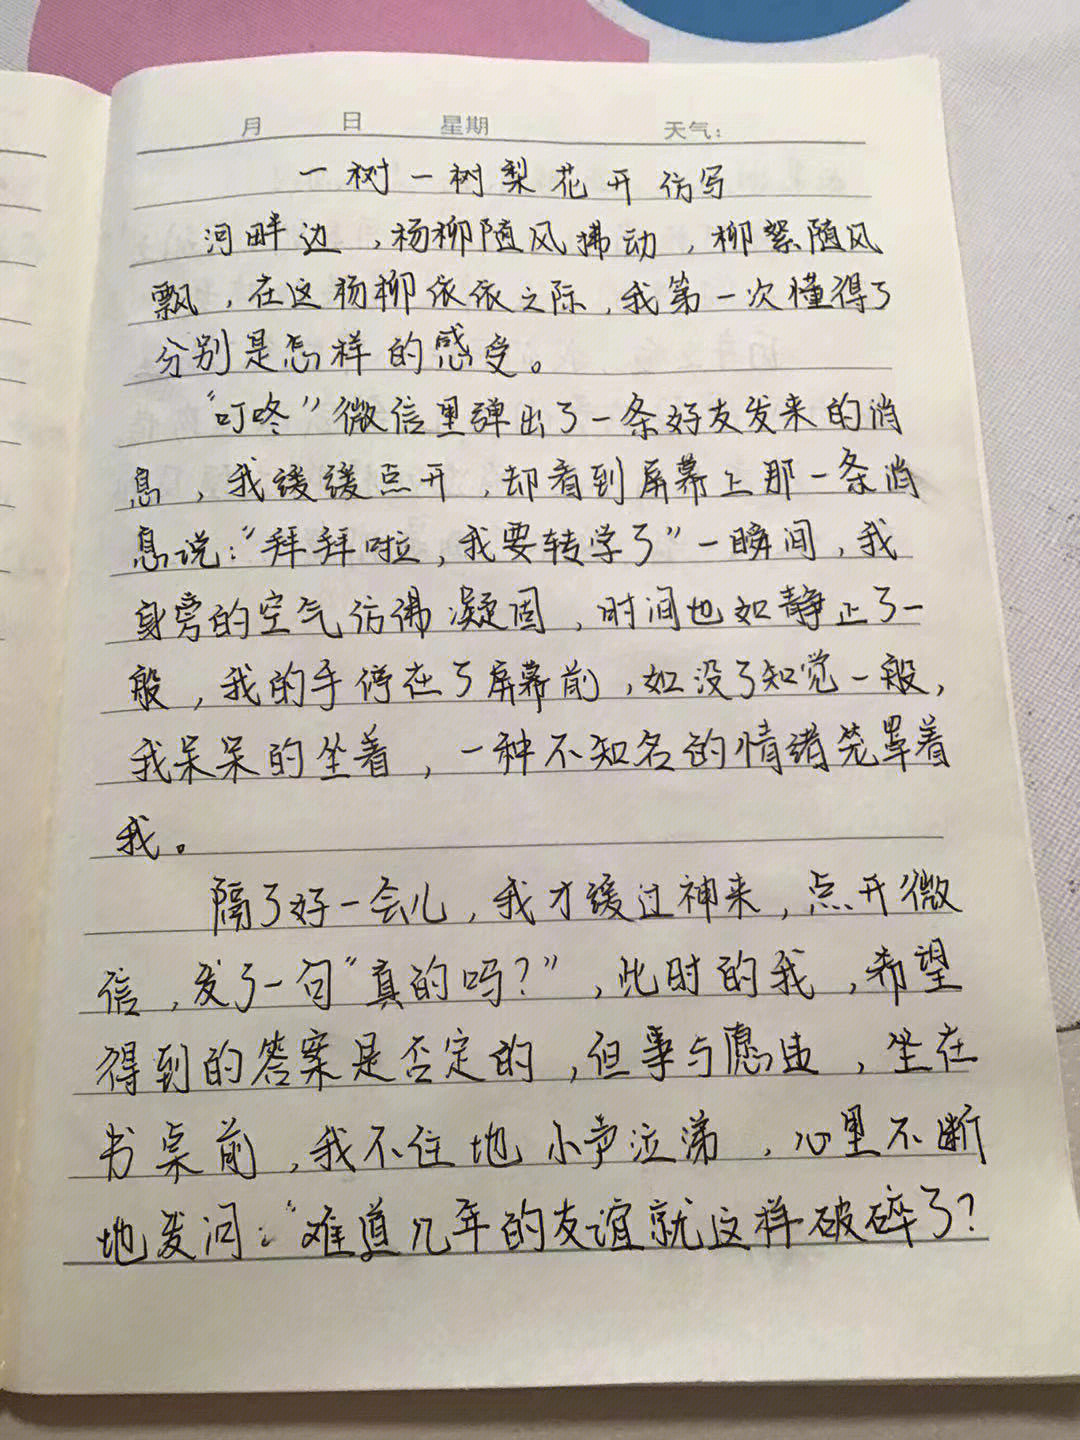 月 日 星期 天气:
一树一树梨花开仿写
河畔边，杨柳随风拂动，柳絮随风
飘，在这杨柳依依之际，我第一次懂得了
分别是怎样的感受。
"叮咚"微信里弹出了一条好友发来的消
息，我缓缓点开，却看到屏幕上那一条消
息说："拜拜啦，我要转学了"一瞬间，我
身旁的空气仿佛凝固，时间也如静止了一
般，我的手停在了屏幕前，如没了知觉一般，
我呆呆的坐着，一种不知名的情绪笼罩着
我。
隔了好一会儿，我才缓过神来，点开微
信，发了一句"真的吗？"，此时的我，希望
得到的答案是否定的，但事与愿违，坐在
书桌前，我不住地小声泣涕，心里不断
地发问："难道几年的友谊就这样破碎了？